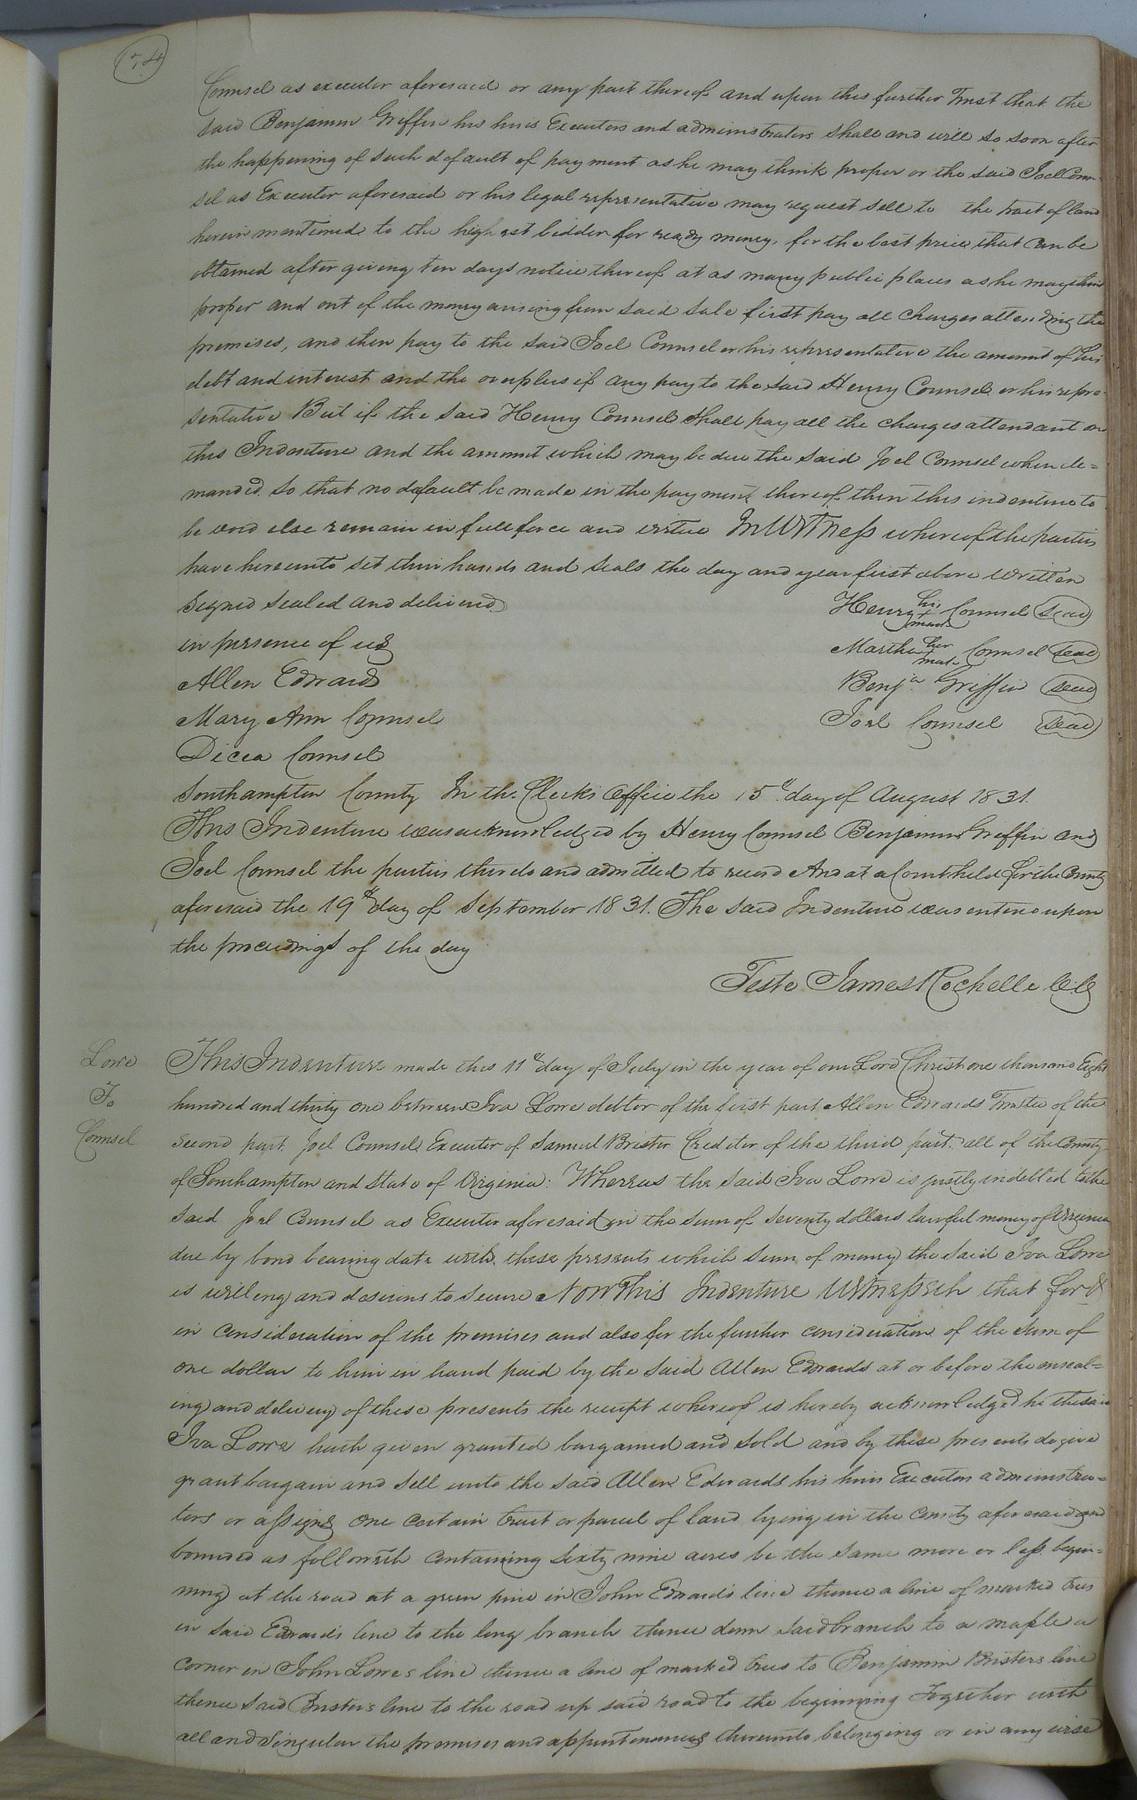 74
Counsel as executor aforesaid or any part thereof and upon this further Trust that the
said Benjamin Griffin his heirs Executors and administrators shall and will so soon after
the happening of such default of payment as he may think proper or the said Joel Coun-
sel as Executor aforesaid or his legal representative may request sell to the tract of land
herein mentioned to the highest bidder for ready money, for the best price that can be
obtained after giving ten days notice thereof at as many public places as he may think
proper and out of the money arising from said sale first pay all charges attending the
premises, and then pay to the said Joel Counsel or his representative the amount of his
debt and interest and the overplus if any pay to the said Henry Counsel or his repre-
sentative But if the said Henry Counsel shall pay all the charges attendant on
this Indenture and the amount which may be due the said Joel Counsel when de=
manded so that no default be made in the payment thereof then this indenture to
be void else remain in full force and virtue In Witness whereof the parties
have hereunto set their hands and seals the day and year first above written
Signed sealed and delivered
in persence of us
Allen Edwards
Mary Ann Counsel
Dicea Counsel
Henry his + mark Counsel seal
Martha her mark Counsel seal
Benja Griffin seal
Joel Counsel seal
Southampton County In the Clerks Office the 15th day of August 1831.
This Indenture was acknowledged by Henry Counsel Benjamin Griffin and
Joel Counsel the parties thereto and admitted to record And at a Court held for the County
aforesaid the 19th day of September 1831. The said Indenture was entered upon
the proceedings of the day
Teste James Rochelle CC
Lowe
To
Counsel
This Indenture made this 11th day of July in the year of our Lord Christ one thousand Eight
hundred and thirty one between Iva Lowe debtor of the first part Allen Edwards Trustee of the
second part. Joel Counsel Executor of Samuel Brister Creditor of the third part. all of the County
of Southampton and State of Virginia: Whereas the said Iva Lowe is justly indebted to the
said Joel Counsel as Executor aforesaid in the sum of seventy dollars lawful money of Virginia
due by bond bearing date with these presents which sum of money the said Iva Lowe
is willing and desirous to secure Now This Indenture Witnesseth that for &
in consideration of the premises and also for the further consideration of the sum of
one dollar to him in hand paid by the said Allen Edwards at or before the unseal=
ing and delivery of these presents the receipt whereof is hereby acknowledged he the said
Iva Lowe hath given granted bargained and sold and by these presents do give
grant bargain and sell unto the said Allen Edwards his heirs Executors administra=
tors or assigns one certain tract or parcel of land lying in the county aforesaid and
bounded as followeth containing sixty nine acres be the same more or less begin=
ning at the road at a green pine in John Edwards line thence a line of marked trees
in said Edwards line to the long branch thence down said branch to a maple a
corner in John Lowes line thence a line of marked trees to Benjamin Bristers line
thence said Bristers line to the road up said road to the beginning Together with
all and singular the premises and appurtenances thereunto belonging or in any wise